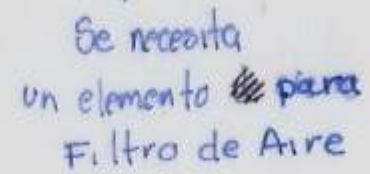 Se necesita
un elemento para
Filtro de Aire